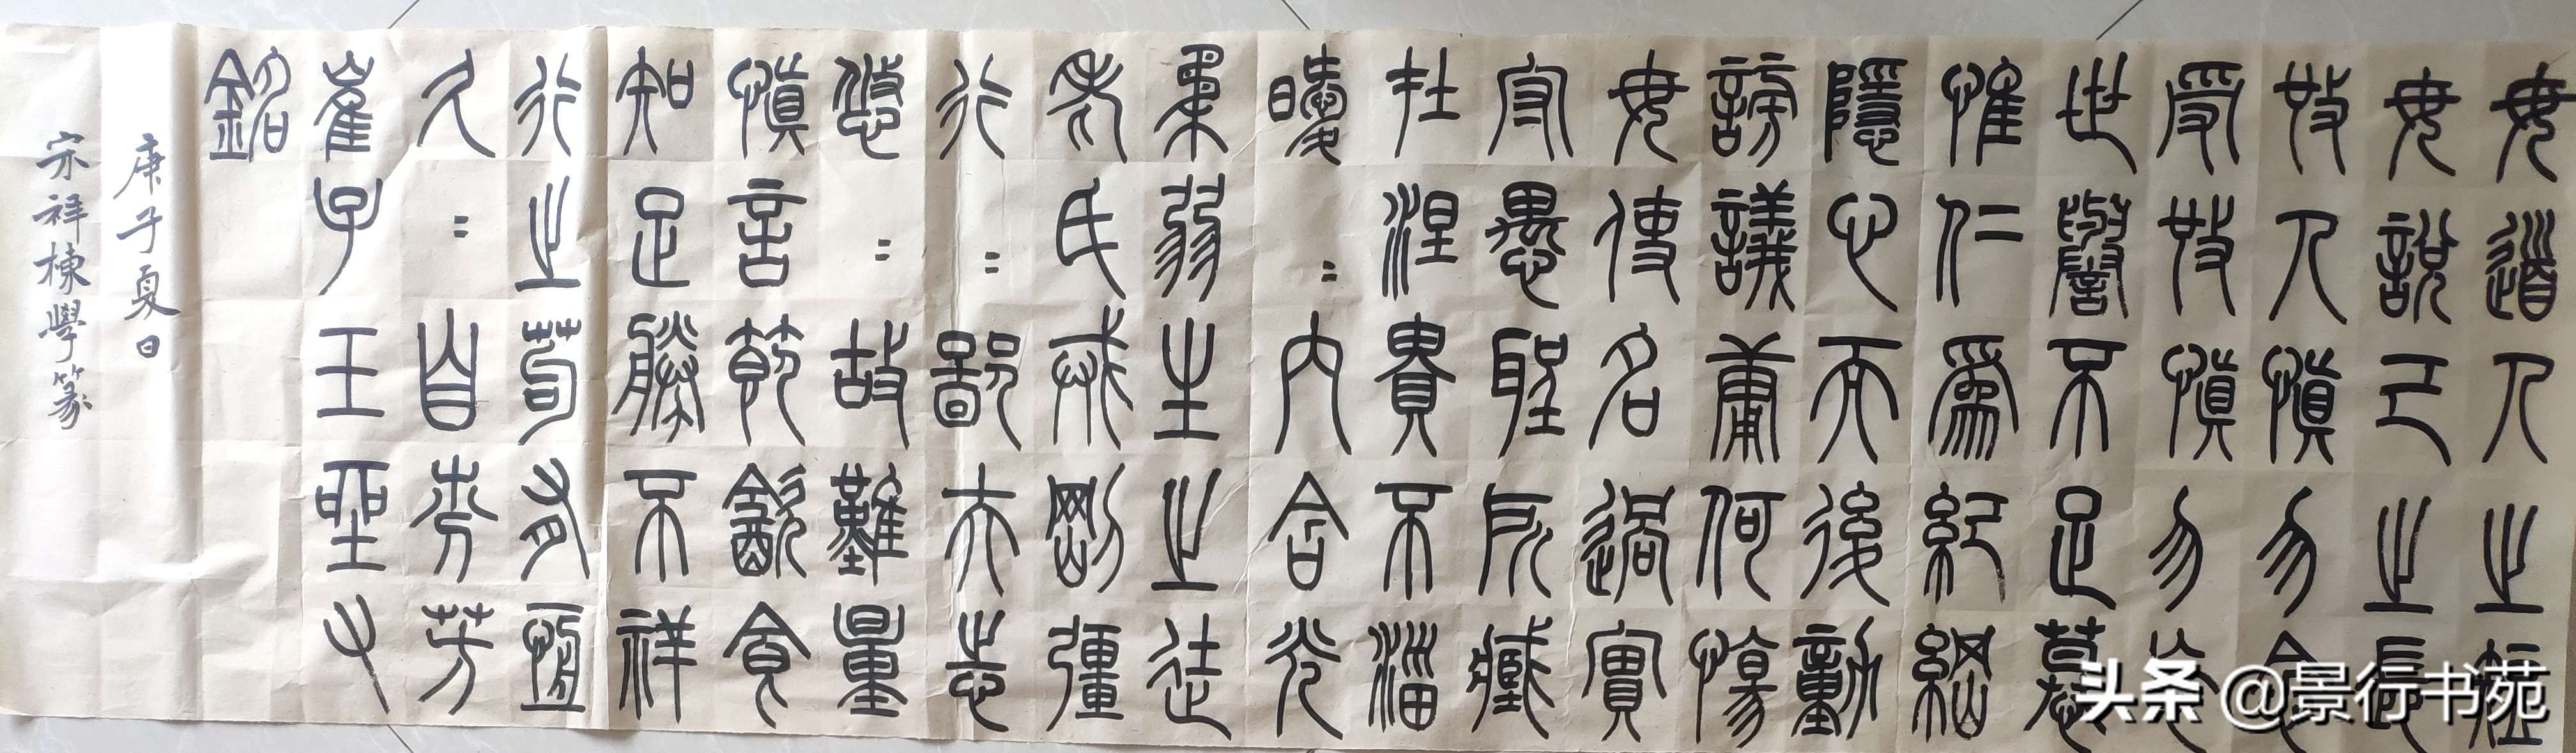 毋道人之短
毋說己之長
施人慎勿念
受施慎勿忘
世譽不足慕
惟仁為紀綱
隱心而後動
謗議庸何傷
毋使名過實
守愚聖所臧
在涅貴不淄
曖〻內含光
柔弱生之徒
老氏戒剛彊
行〻鄙夫志
悠〻故難量
慎言節飲食
知足勝不祥
行之苟有恆
久〻自芬芳
崔子玉座右
銘
庚子夏日
宋祥棟學篆
头条 @景行书苑